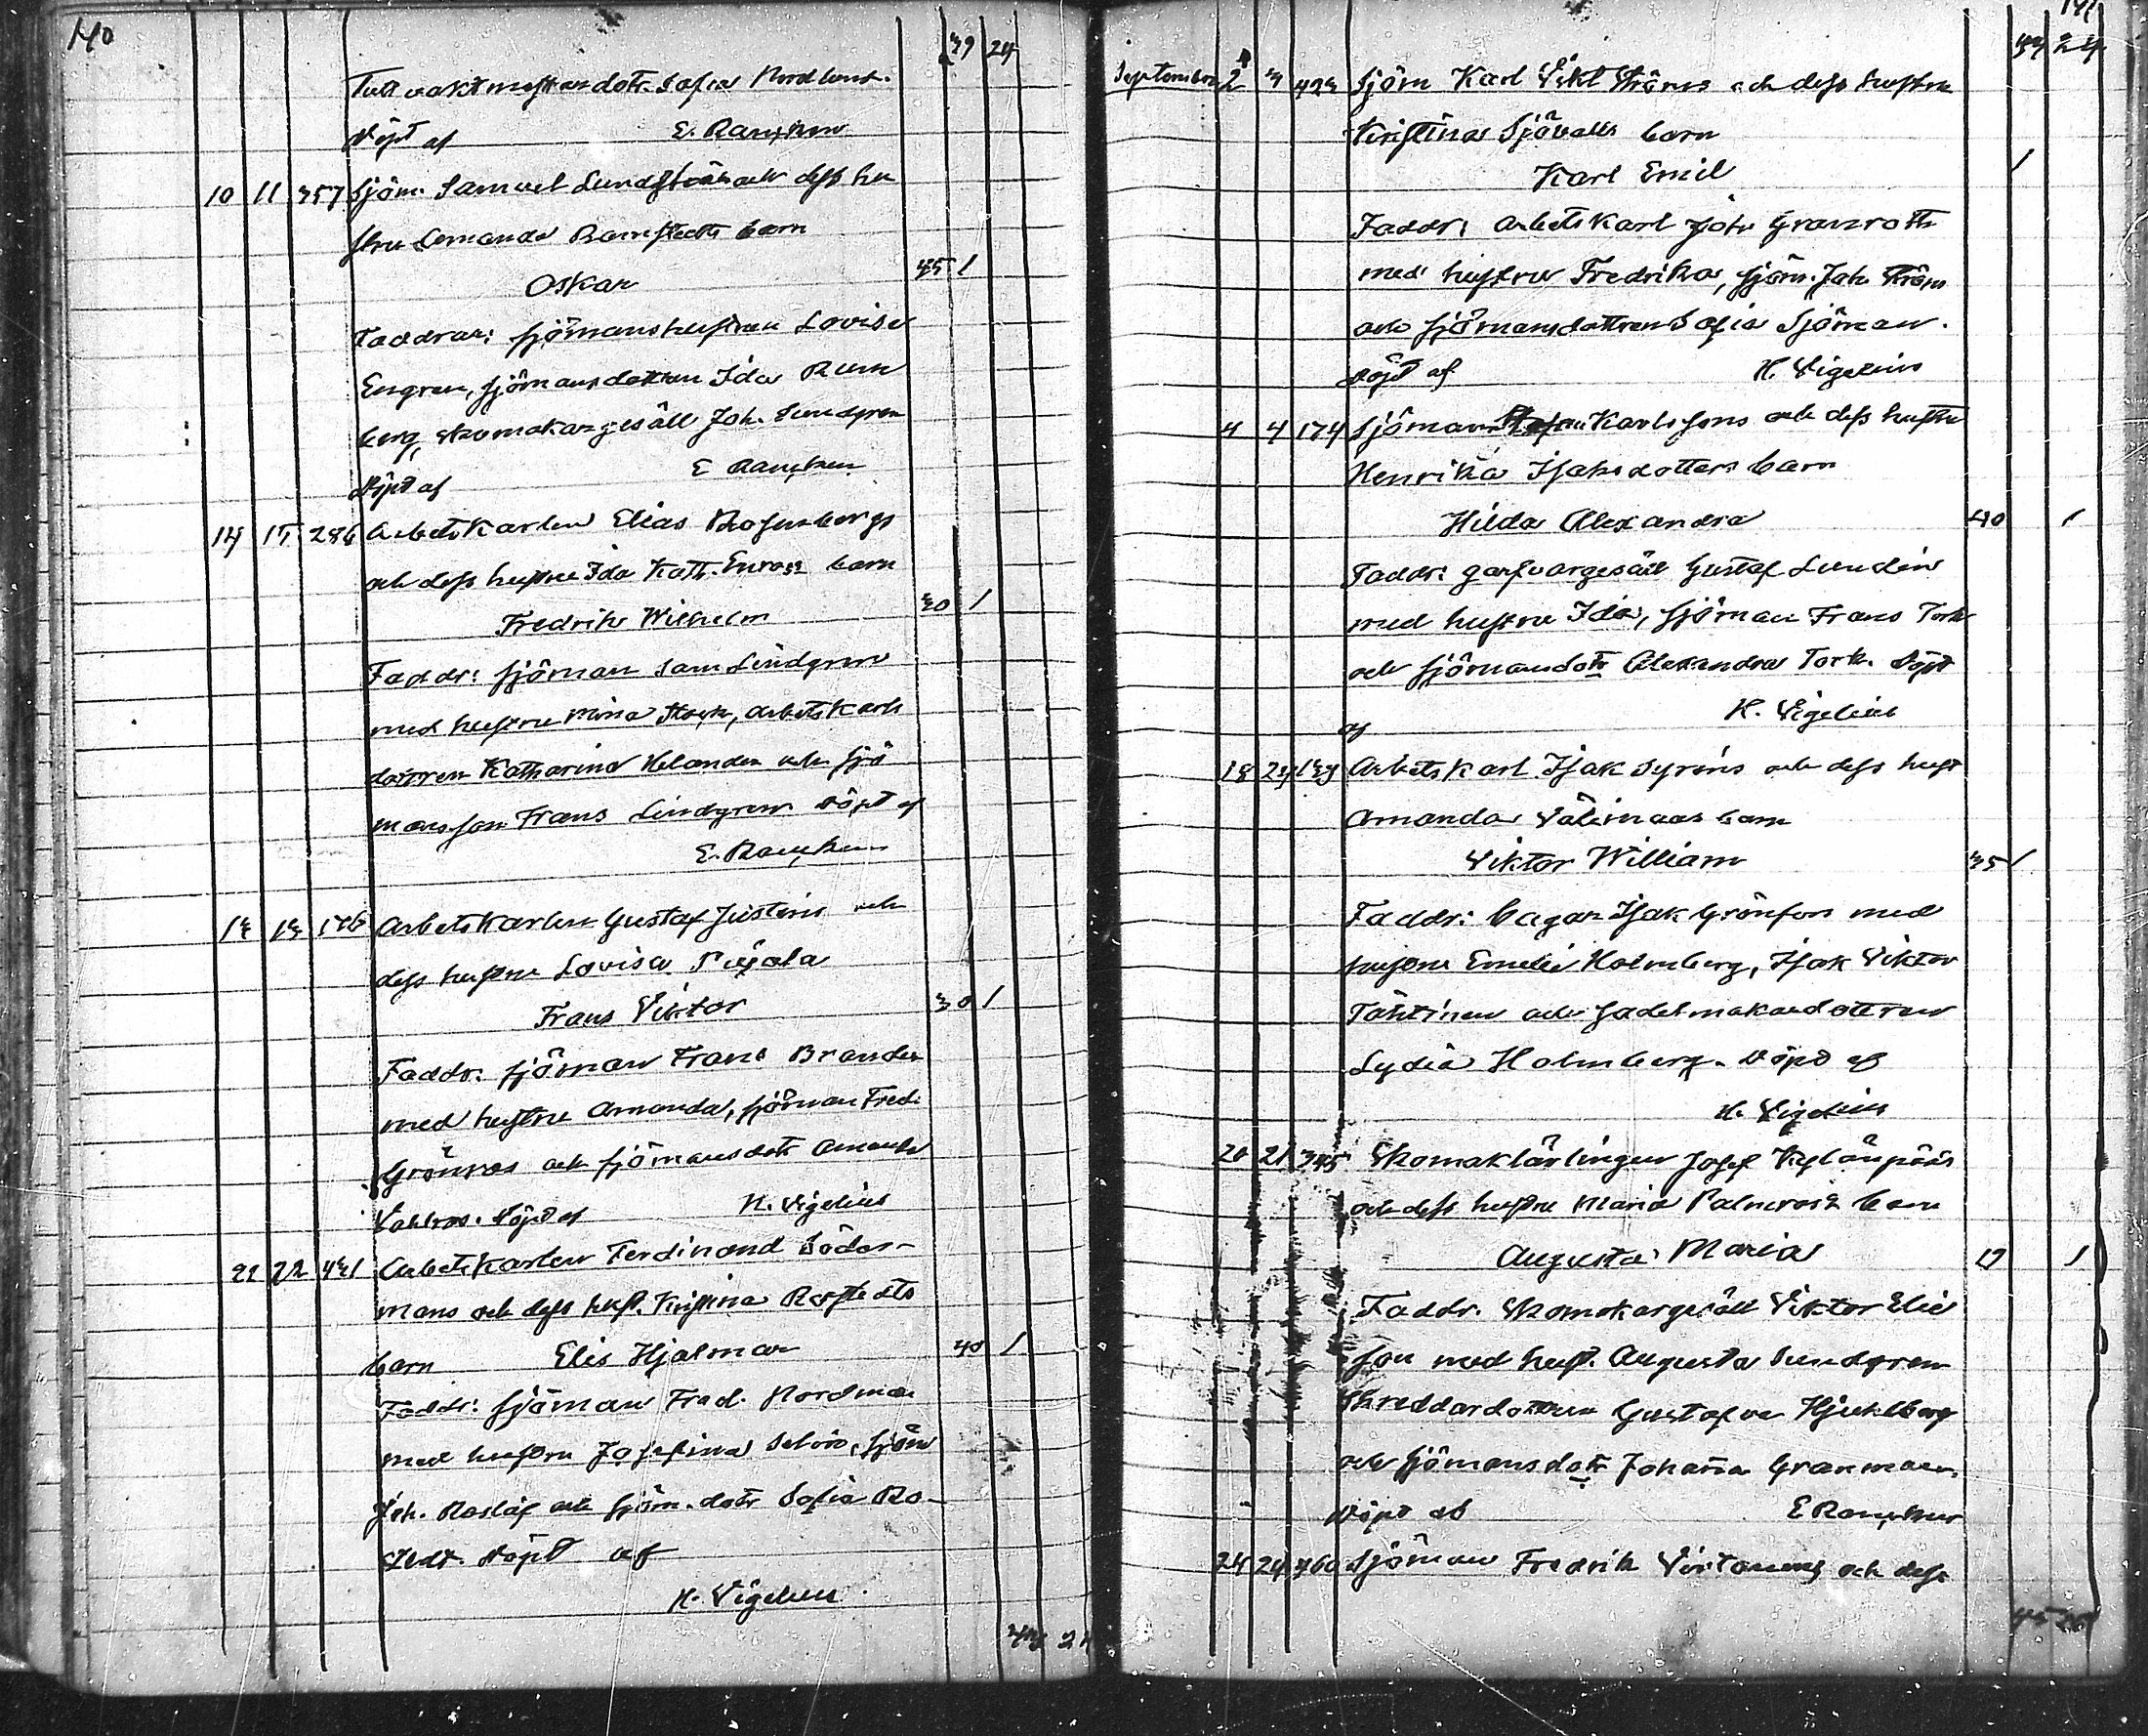 140
39 24
Tullvaktmästaredotr. Sofia Nordlund.
Döpt af E. Rancken
10 11 357 Sjöm. Samuel Lundströms och dess hu
stru Amanda Barnstedts barn
Oskar 45 1
Faddrar: sjömanshustrun Lovisa
Engren, sjömansdottern Ida Rum
berg, skomakargesäll Joh. Lundgren
Döpt af E Rancken
14 15 286 Arbetskarlen Elias Rosenbergs
och dess hustru Ida Kath. Enros's barn
Fredrik Wilhelm 30 1
Faddr: sjöman Sam Lindgren
med hustru Mina, arbetskarls
dottren Katharina Helander och sjö
mansson Frans Lindgren. Döpt af
E. Rancken
13 13 176 Arbetskarlen Gustaf Justins och
dess hustru Lovisa
Frans Viktor 30 1
Faddr: sjöman Frans Brander
med hustru Amanda, sjöman Fred.
Grönroos och sjömansdotr Amanda
Vahlroos. Döpt af H. Vigelius
21 22 431 Arbetskarlen Ferdinand Söder-
mans och dess hust. Kristina Rostedts
barn Elis Hjalmar 40 1
Faddr: sjöman Fred. Nordman
med hustru Josefina Selin, sjöm
Joh. Roslöf och sjöm. dotr Sofia Ro-
stedt. Döpt af
H. Vigelius
44 24
141
44 24
September 2 4 423 Sjöm Karl Vikt Ströms och dess hustru
Kristina Sjövalls barn
Karl Emil 1
Faddr: Arbetskarl Joh Granroth
med hustru Fredrika, sjöm. Joh. Ström
och sjömansdottren Sofia Sjöman.
Döpt af H. Vigelius
4 4 174 Sjöman Karlssons och dess hustru
Henrika Isaksdotters barn
Hilda Alexandra 40 1
Faddr: garfvargesäll Gustaf Lundin
med hustru Ida, sjöman Frans Tork
och sjömansdotr Alexandra Tork. Döpt
af H. Vigelius
18 24 Arbetskarl Isak Syréns och dess hust
Amanda Välimaas barn
Viktor William 35 1
Faddr: bagar Isak Grönfors med
hustru Emelie Holmberg, Isak Viktor
Tähtinen och sadelmakaredottren
Lydia Holmberg. Döpt af
H. Vigelius
20 21 345 Skomaklärlingen Josef Kylänpääs
och dess hustru Maria Palmroos's barn
Augusta Maria 1
Faddr. Skomakargesäll Viktor Elie
son med hust. Augusta Lundgren
Skreddardottren Gustafva Hjuklberg
och sjömansdotr Johanna Granman.
Döpt af E Rancken
24 24 460 Sjöman Fredrik Virtanens och dess
45 26